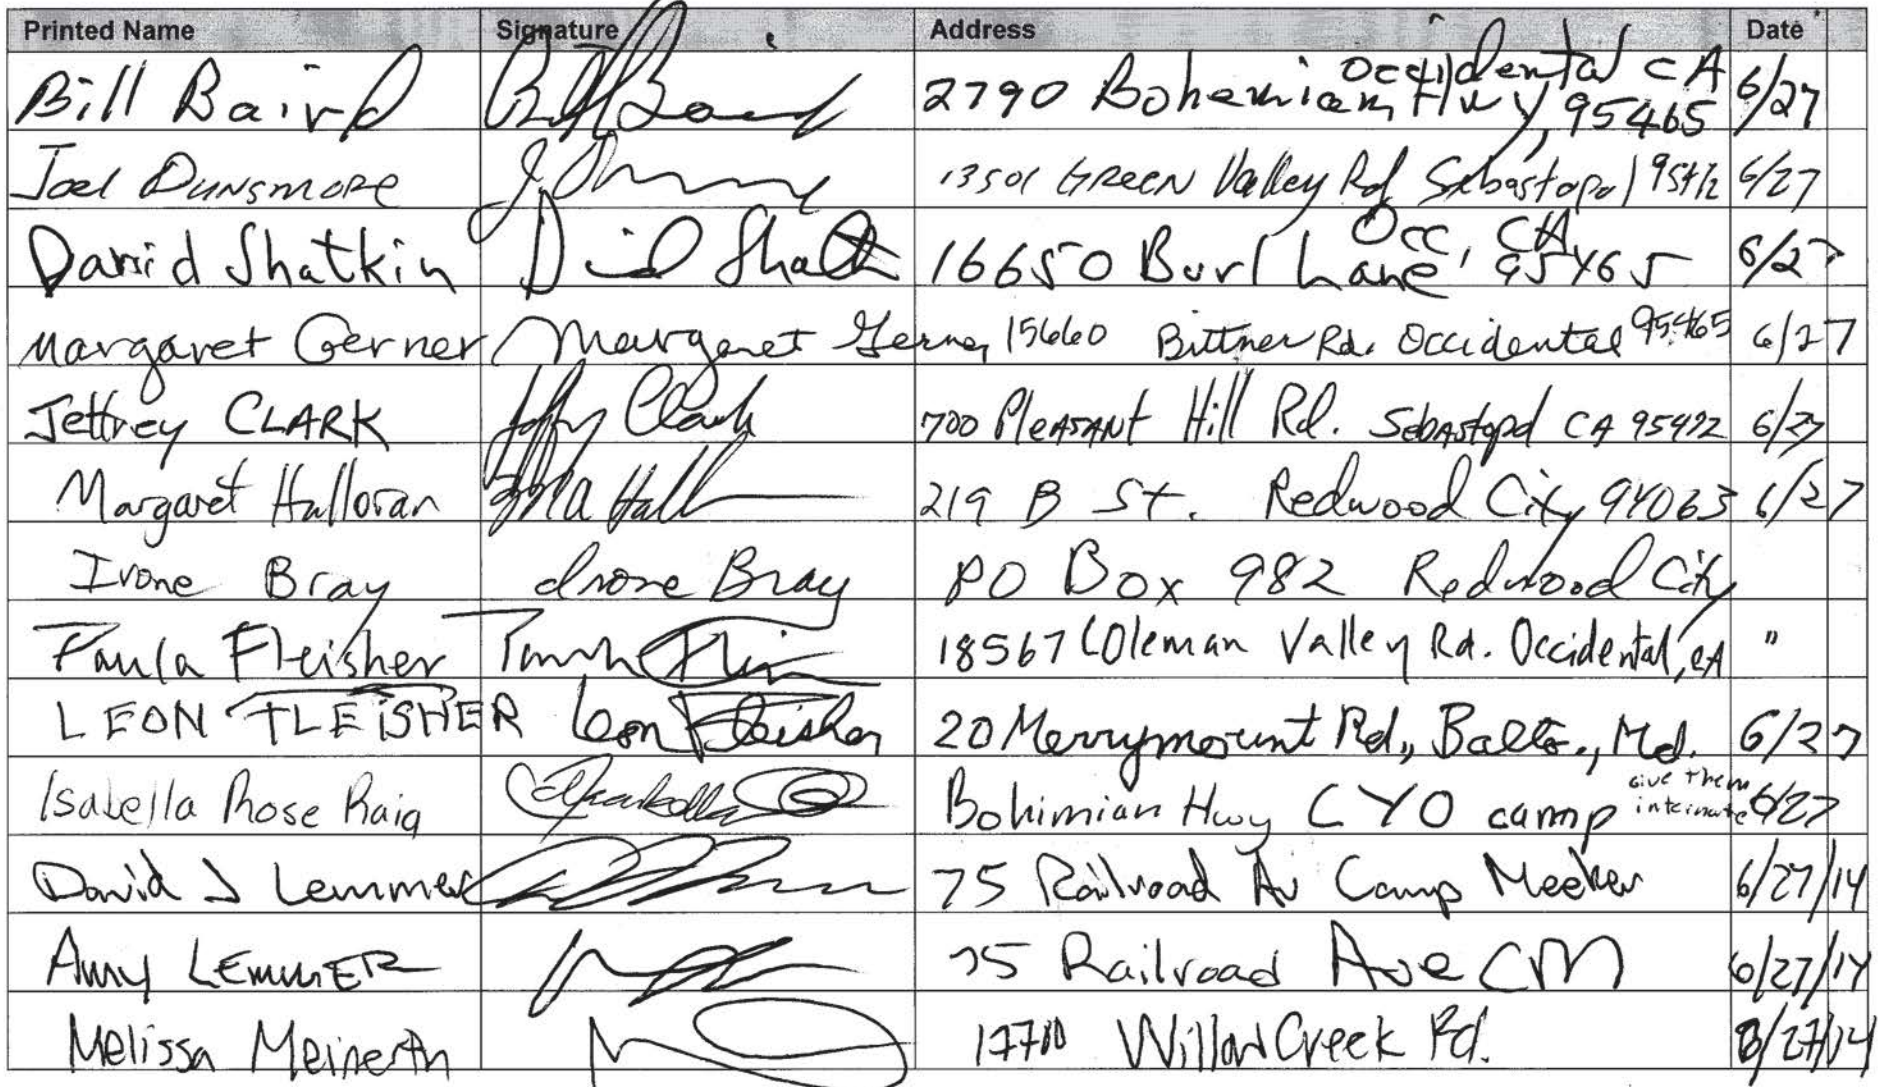 Printed Name Signature Address Date
Bill Baird Bill Baird 2790 Bohemian Hwy, Occidental CA 95465 6/27
Joel Dunsmore 13501 Green Valley Rd Sebastopol 95472 6/27
David Shatkin David Shatkin 16650 Burl Lane, Occ, CA 95465 6/27
Margaret Gerner Margaret Gerner 15660 Bittner Rd. Occidental 95465 6/27
Jeffrey CLARK Jeffrey Clark 700 Pleasant Hill Rd. Sebastopol CA 95472 6/27
Margaret Halloran 219 B St. Redwood City 94063 6/27
Irone Bray Irone Bray PO Box 982 Redwood City
Paula Fleisher 18567 Coleman Valley Rd. Occidental, CA "
LEON FLEiSHER Leon Fleisher 20 Merrymount Rd., Balto., Md. 6/27
Isabella Rose Raig Bohimian Hwy CYO camp give them 6/27
David J Lemmer 75 Railroad Av Camp Meeker 6/27/14
Amy LEMMER 75 Railroad Ave CM 6/27/14
Melissa Meinerth Willow Creek Rd. /27/14